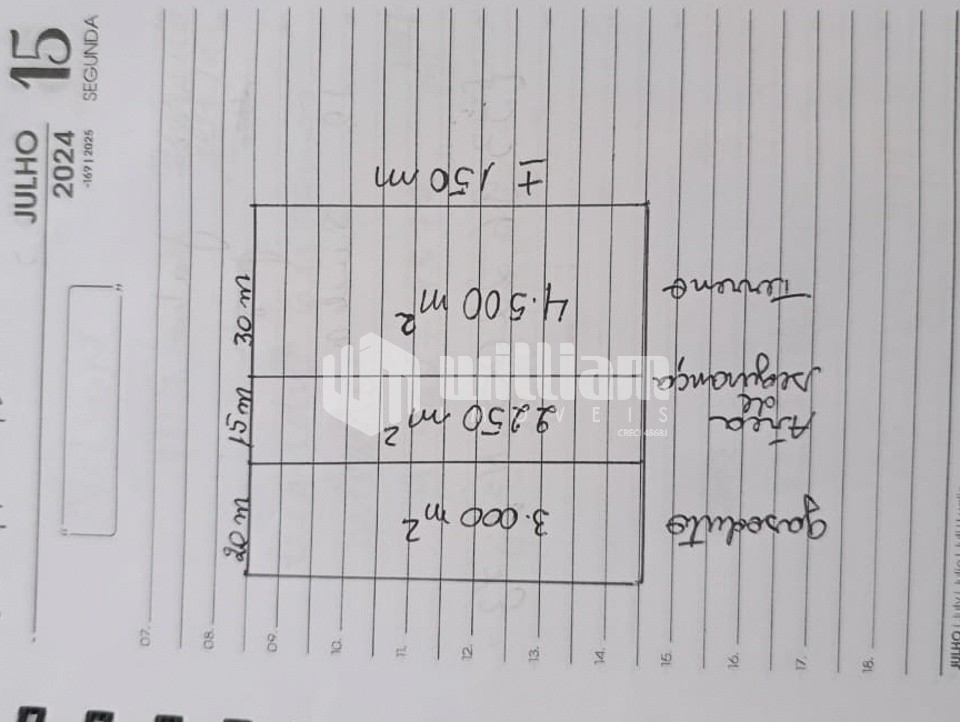 JULHO 15
2024 SEGUNDA
-169 | 2025
“ ”
07.
08.
09.
10.
11.
12.
13.
14.
15.
16.
17.
18.
20 m 15 m 30 m
3.000 m²
2250 m²
4.500 m²
± 150 m
gasoduto
Área
de
segurança
Terreno
william
IMÓVEIS
JULHO | July | Julio | Juli | Luglio